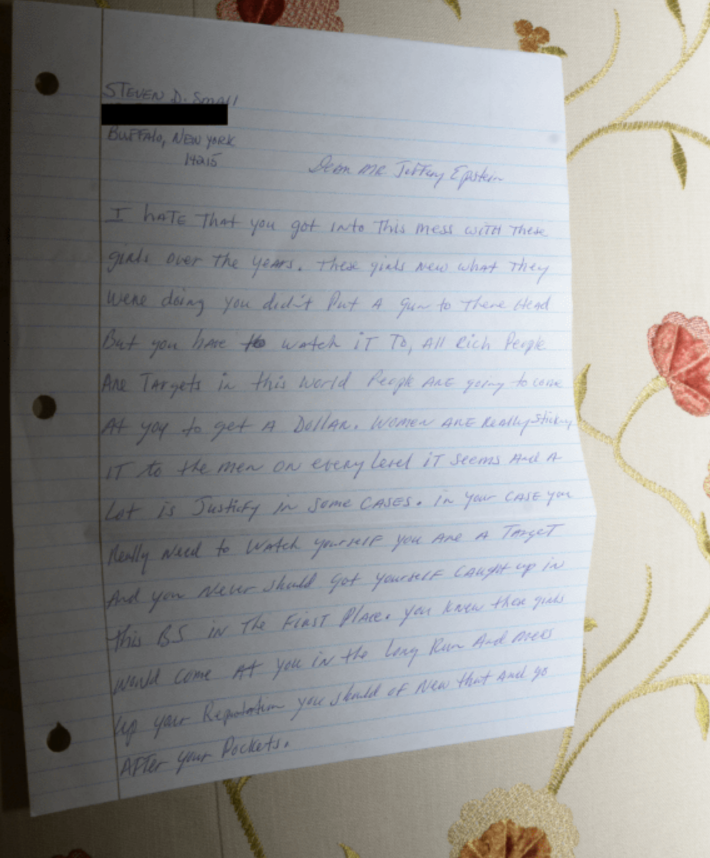 STEVEN D. Small
BUFFAlo, NEW YORK
14215
Dear MR. Jeffery Epstein
I hATE THAT you got into This mess WITH These
girls over The years. These girls New what They
were doing you didn't Put A gun to There Head
But you have to watch iT To, All Rich People
Are Targets in this world People ARE going to come
AT you to get A Dollar. Women ARE Really sticking
IT to the men on every level iT seems And A
Lot is Justify in some CASES. in your CASE you
Really Need to WATCH yourself you Are A Target
And you Never should got yourself CAUGHT up in
this BS in The First Place. you knew these girls
would come AT you in the long Run And mess
up your Reputation you should of New that And go
AFTer your Pockets.